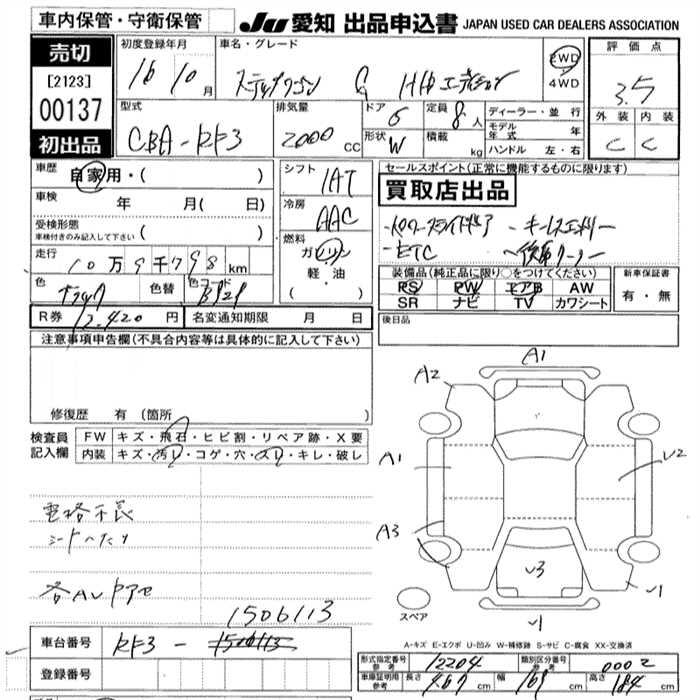 車内保管・守衛保管
JU 愛知 出品申込書 JAPAN USED CAR DEALERS ASSOCIATION
売切
[2123]
00137
初出品
初度登録年月
16 10月
車名・グレード
ステップワゴン G HDDエディション
2WD
4WD
評価点
3.5
外装 内装
C C
型式
CBA-RF3
排気量
2000 CC
ドア 5
形状 W
定員 8人
積載 kg
ディーラー・並行
モデル年式 年
ハンドル 左・右
車歴
自家用・( )
車検
年 月( 日)
受検形態
車検付きのみ記入して下さい ( )
走行
10万9千798km
色 ブラック 色替 色コード B92P
R券 12,420円 名変通知期限 月 日
シフト
IAT
冷房
AAC
燃料
ガソリン
軽・油
( )
セールスポイント(正常に機能するものに限ります)
買取店出品
・パワースライドドア ・キーレスエントリー
・ETC
装備品(純正品に限り○をつけてください)
PS PW エアB AW
SR ナビ TV カワシート
新車保証書
有・無
後日品
注意事項申告欄(不具合内容等は具体的に記入して下さい)
修復歴 有 (箇所 )
検査員記入欄
FW キズ・飛石・ヒビ割・リペア跡・X要
内装 キズ・汚レ・コゲ・穴・スレ・キレ・破レ
電格不良
シートへたり
各AUドアセ
1506113
車台番号 RF3 - 1506113
登録番号
A1
A2
A1
U2
A3
U3
U1
U1
スペア
A-キズ E-エクボ U-凹み W-補修跡 S-サビ C-腐食 XX-交換済
形式指定番号 参考 12204 類別区分番号 参考 0002
車庫証明用 参考 長さ 467cm 幅 169cm 高さ 184cm